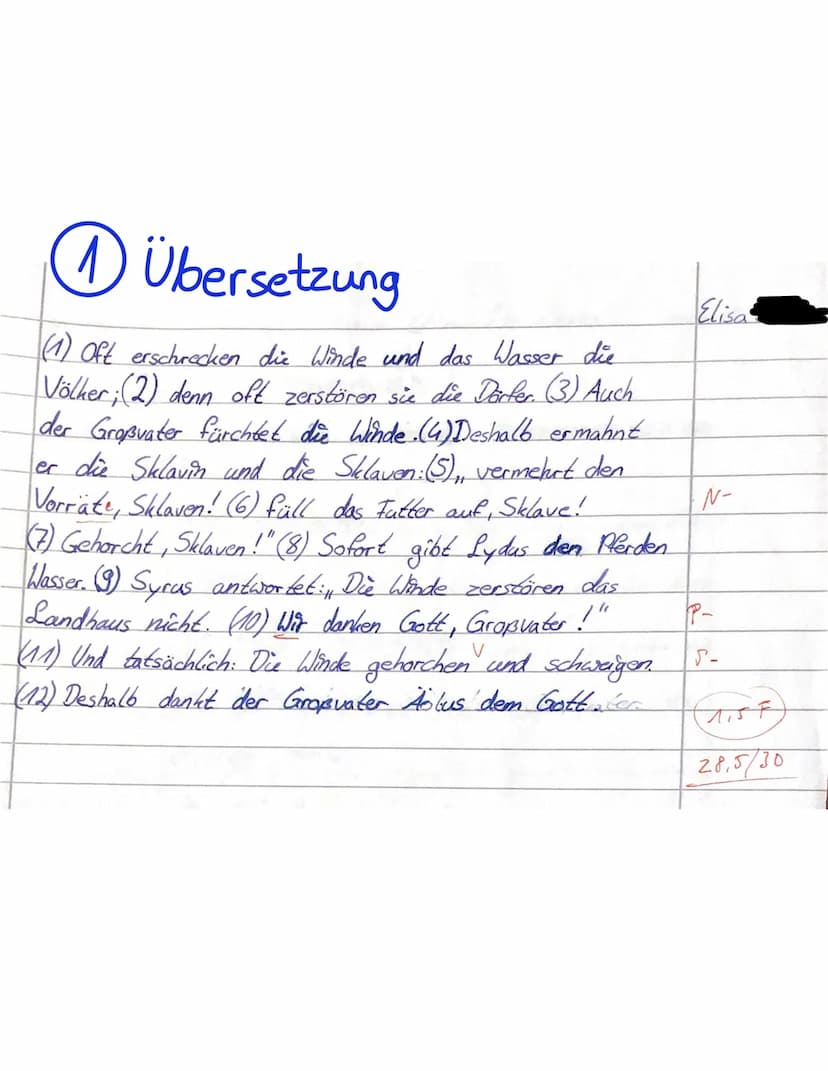 ① Übersetzung
Elisa
(1) Oft erschrecken die Winde und das Wasser die
Völker; (2) denn oft zerstören sie die Dörfer. (3) Auch
der Großvater fürchtet die Winde. (4) Deshalb ermahnt
er die Sklavin und die Sklaven: (5) „vermehrt den
Vorräte, Sklaven! (6) füll das Futter auf, Sklave!
N-
(7) Gehorcht, Sklaven!" (8) Sofort gibt Lydus den Pferden
Wasser. (9) Syrus antwortet: „Die Winde zerstören das
Landhaus nicht. (10) Wir danken Gott, Großvater!"
P-
(11) Und tatsächlich: Die Winde gehorchen V und schweigen.
S-
(12) Deshalb dankt der Großvater Äolus dem Gott.
1,5 F
28,5/30